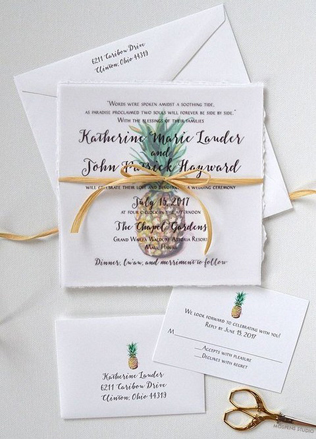 6211 Caribou Drive
Clinton, Ohio 44319
"Words were spoken amidst a soothing tide,
as paradise proclaimed two souls will forever be side by side."
With the blessings of their families
Katherine Marie Lauder
and
John Patrick Hayward
will celebrate their love and a wedding ceremony
July 15, 2017
at four o'clock in the afternoon
The Chapel Gardens
Grand Wailea Waldorf Astoria Resort
Maui, Hawaii
Dinner, lu'au, and merriment to follow
We look forward to celebrating with you!
Reply by June 15, 2017
M
Accepts with pleasure
Declines with regret
Katherine Lauder
6211 Caribou Drive
Clinton, Ohio 44319